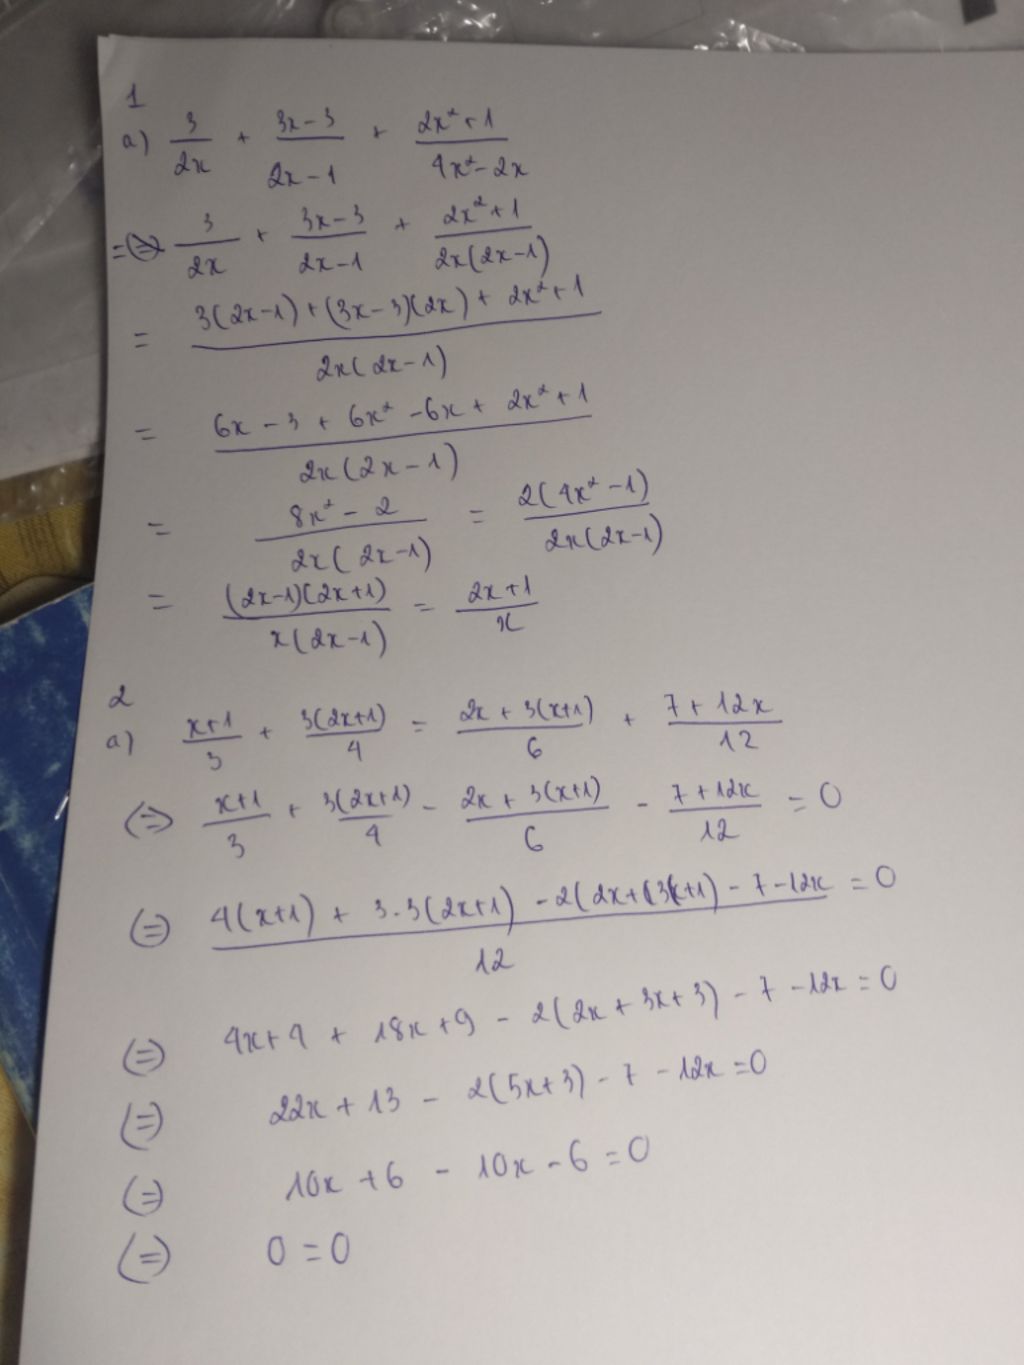 1
a) 3/2x + 3x-3/2x-1 + 2x²+1/4x²-2x
= 3/2x + 3x-3/2x-1 + 2x²+1/2x(2x-1)
= 3(2x-1)+(3x-3)(2x)+2x²+1/2x(2x-1)
= 6x-3+6x²-6x+2x²+1/2x(2x-1)
= 8x²-2/2x(2x-1) = 2(4x²-1)/2x(2x-1)
= (2x-1)(2x+1)/x(2x-1) = 2x+1/x
2
a) x+1/3 + 3(2x+1)/4 = 2x+3(x+1)/6 + 7+12x/12
(=) x+1/3 + 3(2x+1)/4 - 2x+3(x+1)/6 - 7+12x/12 = 0
(=) 4(x+1) + 3.3(2x+1) - 2(2x+(3(x+1) - 7-12x/12 = 0
(=) 4x+4 + 18x+9 - 2(2x+3x+3) - 7 - 12x = 0
(=) 22x + 13 - 2(5x+3) - 7 - 12x = 0
(=) 10x + 6 - 10x - 6 = 0
(=) 0 = 0